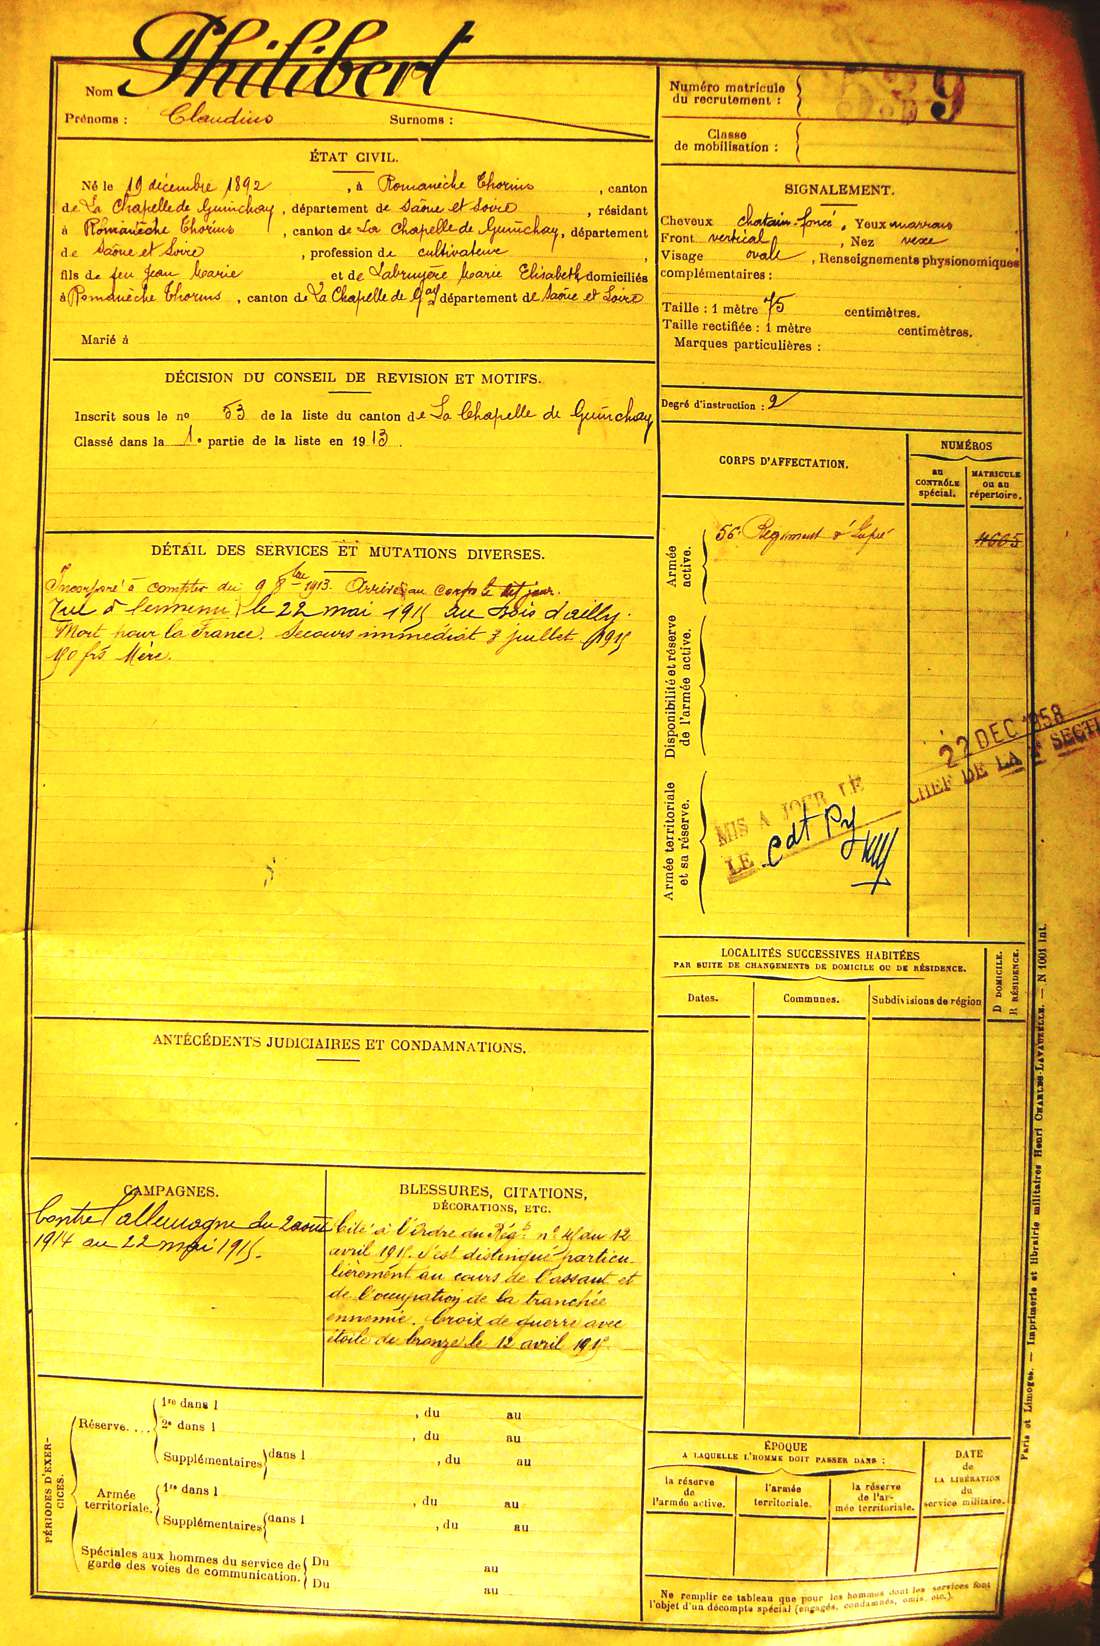 Nom Philibert
Prénoms : Claudius Surnoms :
ÉTAT CIVIL.
Né le 19 décembre 1892, à Romanèche Thorins, canton
de La Chapelle de Guinchay, département de Saône et Loire, résidant
à Romanèche Thorins, canton de La Chapelle de Guinchay, département
de Saône et Loire, profession de cultivateur
fils de feu Jean Marie et de Labruyère Marie Elisabeth domiciliés
à Romanèche Thorins, canton de La Chapelle de Gay département de Saône et Loire
Marié à
DÉCISION DU CONSEIL DE REVISION ET MOTIFS.
Inscrit sous le no 53 de la liste du canton de La Chapelle de Guinchay
Classé dans la 1e partie de la liste en 1913.
DÉTAIL DES SERVICES ET MUTATIONS DIVERSES.
Incorporé à compter du 9 8bre 1913. Arrivé au corps le dit jour.
Tué à l'ennemi le 22 mai 1915 au bois d'ailly.
Mort pour la France. Secours immédiat 3 juillet 1915
150 frs Mère.
ANTÉCÉDENTS JUDICIAIRES ET CONDAMNATIONS.
CAMPAGNES.
Contre l'allemagne du 2 août
1914 au 22 mai 1915.
BLESSURES, CITATIONS,
DÉCORATIONS, ETC.
Cité à l'ordre du Régt n° 45 du 12
avril 1915. S'est distingué particu-
lièrement au cours de l'assaut et
de l'occupation de la tranchée
ennemie. Croix de guerre avec
étoile de bronze le 12 avril 1915.
PÉRIODES D'EXER-
CICES.
Réserve....
1re dans l , du au
2e dans l , du au
Supplémentaires dans l , du au
Armée
territoriale.
1re dans l , du au
Supplémentaires dans l , du au
Spéciales aux hommes du service de
garde des voies de communication.
Du au
Du au
Numéro matricule
du recrutement :
9
Classe
de mobilisation :
SIGNALEMENT.
Cheveux chatain-foncé, Yeux marrons
Front vertical, Nez vexe
Visage ovale, Renseignements physionomiques
complémentaires :
Taille : 1 mètre 75 centimètres.
Taille rectifiée : 1 mètre centimètres.
Marques particulières :
Degré d'instruction : 2
CORPS D'AFFECTATION.
NUMÉROS
au
CONTRÔLE
spécial.
MATRICULE
ou au
répertoire.
Armée
active.
56e Régiment d'Infrie
4605
Disponibilité et réserve
de l'armée active.
Armée territoriale
et sa réserve.
22 DEC 1958
MIS A JOUR LE
LE CHEF DE LA 1e SECTI
Cdt Py
LOCALITÉS SUCCESSIVES HABITÉES
PAR SUITE DE CHANGEMENTS DE DOMICILE OU DE RÉSIDENCE.
Dates. Communes. Subdivisions de région
D DOMICILE.
R RÉSIDENCE.
ÉPOQUE
A LAQUELLE L'HOMME DOIT PASSER DANS :
la réserve
de
l'armée active.
l'armée
territoriale.
la réserve
de l'ar-
mée territoriale.
DATE
de
LA LIBÉRATION
du
service militaire.
Ne remplir ce tableau que pour les hommes dont les services font
l'objet d'un décompte spécial (engagés, condamnés, omis, etc.).
Paris et Limoges. — Imprimerie et librairie militaires Henri CHARLES-LAVAUZELLE. — N 1001 Int.